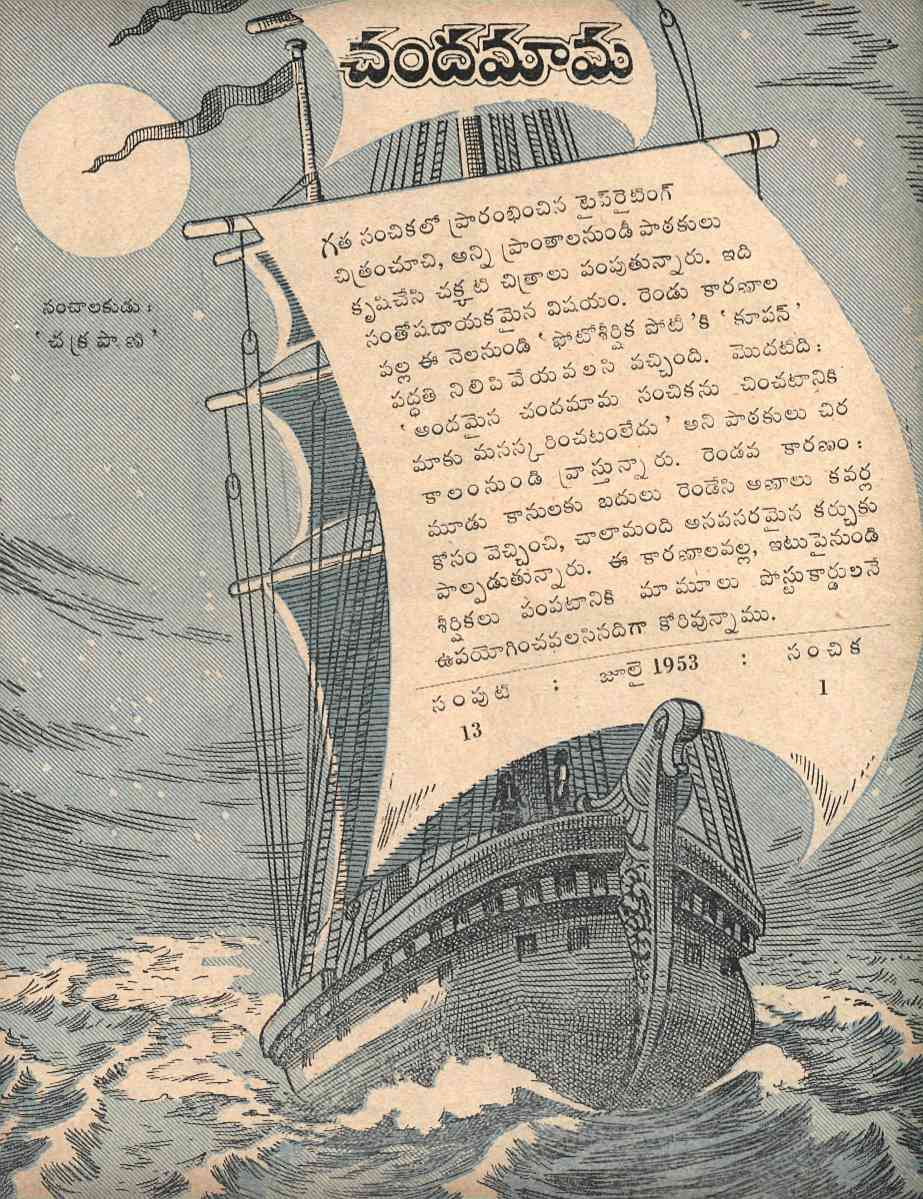 చందమామ
సంచాలకుడు :
' చక్రపాణి '
గత సంచికలో ప్రారంభించిన టైప్‌రైటింగ్
చిత్రంచూచి, అన్ని ప్రాంతాలనుండీ పాఠకులు
కృషిచేసి చక్కటి చిత్రాలు పంపుతున్నారు. ఇది
సంతోషదాయకమైన విషయం. రెండు కారణాల
వల్ల ఈ నెలనుండి ' ఫోటోశీర్షిక పోటీ 'కి ' కూపన్ '
పద్ధతి నిలిపివేయవలసి వచ్చింది. మొదటిది :
' అందమైన చందమామ సంచికను చించటానికి
మాకు మనస్కరించటంలేదు ' అని పాఠకులు చిర
కాలంనుండి వ్రాస్తున్నారు. రెండవ కారణం :
మూడు కానులకు బదులు రెండేసి అణాలు కవర్ల
కోసం వెచ్చించి, చాలామంది అనవసరమైన కర్చుకు
పాల్పడుతున్నారు. ఈ కారణాలవల్ల, ఇటుపైనుండి
శీర్షికలు పంపటానికి మామూలు పోస్టుకార్డులనే
ఉపయోగించవలసినదిగా కోరివున్నాము.
సంపుటి : జూలై 1953 : సంచిక
13 1